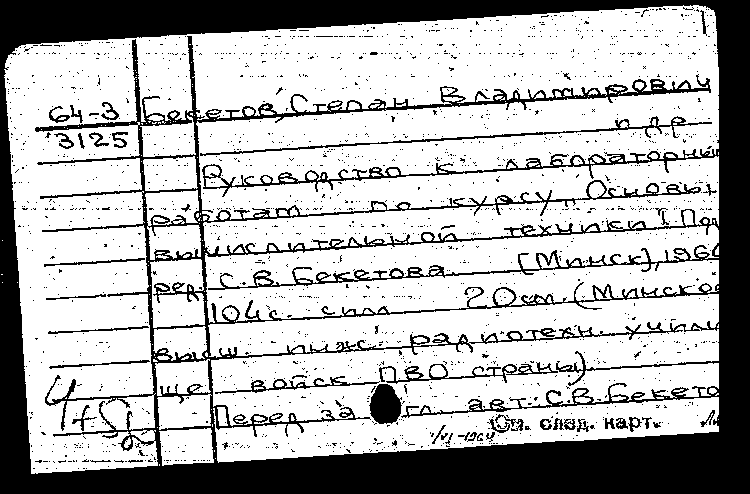 64-3 Бекетов, Степан Владимирович
3125 и др
Руководство к лабораторным
работам по курсу „Основы
вычислительной техники". Под
ред. С.В. Бекетова. [Минск], 1964
104 с. с илл 20 см. (Минское
высш. инж. радиотехн. учили
ще войск ПВО страны).
Перед за гл. авт.: С.В. Бекето
См. след. карт.